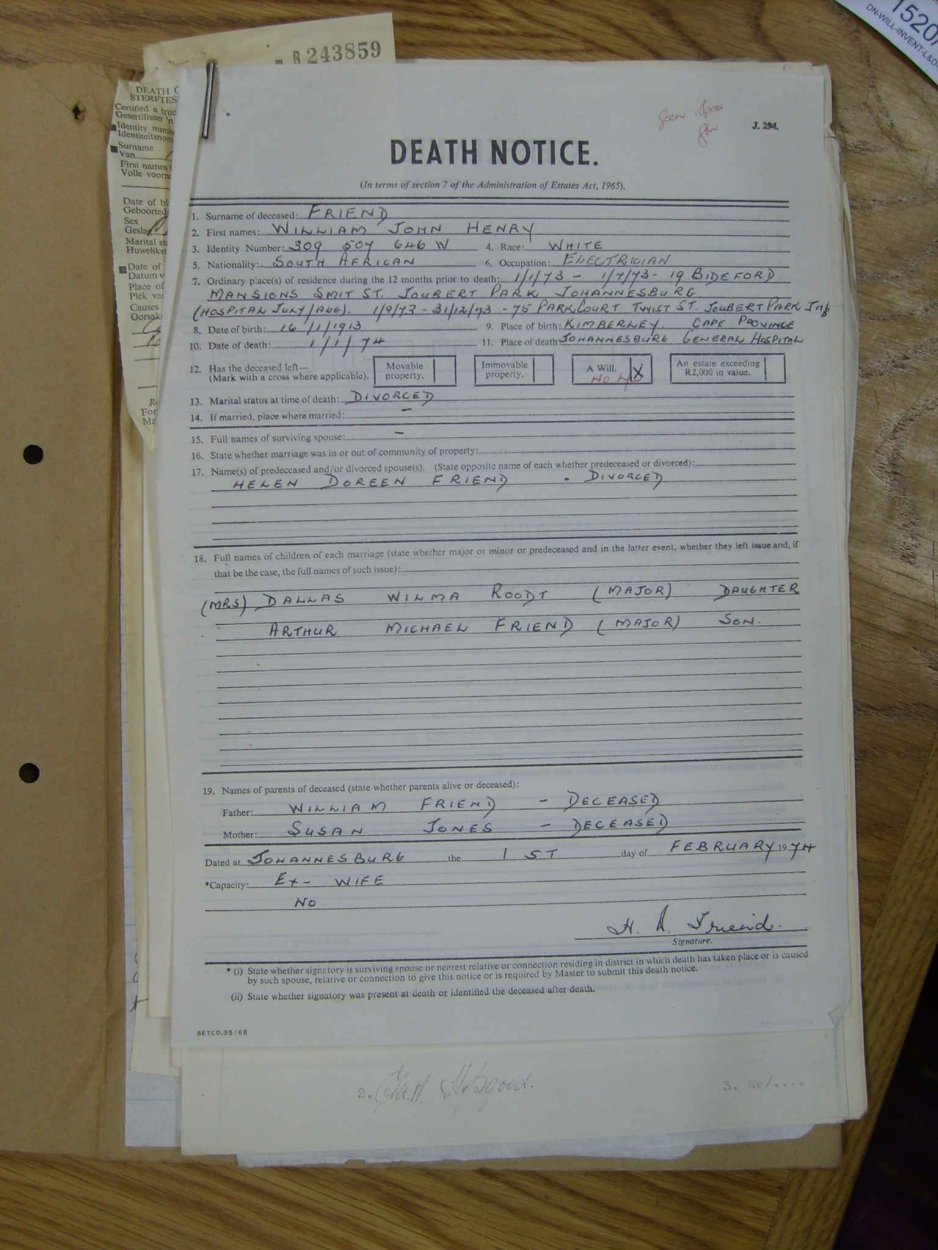 B 243859
1520
DN-WILL-INVENT-L&D
DEATH
STERFTES
Certified a true
Gesertifiseer 'n
Identity numb
Identiteitsnom
Surname
Van
First names
Volle voorn
Date of bi
Geboorted
Sex
Geslag
Marital st
Huwelikst
Date of
Datum v
Place of
Plek va
Causes
Oorsak
J. 294.
DEATH NOTICE.
(In terms of section 7 of the Administration of Estates Act, 1965).
1. Surname of deceased: FRIEND
2. First names: WILLIAM JOHN HENRY
3. Identity Number: 309 507 646 W 4. Race: WHITE
5. Nationality: SOUTH AFRICAN 6. Occupation: ELECTRICIAN
7. Ordinary place(s) of residence during the 12 months prior to death: 1/1/73 - 1/7/73 - 19 BIDEFORD
MANSIONS SMIT ST. JOUBERT PARK JOHANNESBURG
(HOSPITAL JULY/AUG). 1/9/73 - 31/12/73 - 75 PARKCOURT TWIST ST. JOUBERT PARK JHB
8. Date of birth: 16/1/1913 9. Place of birth: KIMBERLEY. CAPE PROVINCE
10. Date of death: 1/1/74 11. Place of death JOHANNESBURG GENERAL HOSPITAL
12. Has the deceased left— (Mark with a cross where applicable). Movable property. Immovable property. A Will. X An estate exceeding R2,000 in value.
NO
13. Marital status at time of death: DIVORCED
14. If married, place where married: –
15. Full names of surviving spouse: –
16. State whether marriage was in or out of community of property:
17. Name(s) of predeceased and/or divorced spouse(s). (State opposite name of each whether predeceased or divorced):
HELEN DOREEN FRIEND - DIVORCED
18. Full names of children of each marriage (state whether major or minor or predeceased and in the latter event, whether they left issue and, if
that be the case, the full names of such issue):
(MRS) DALLAS WILMA ROODT (MAJOR) DAUGHTER
ARTHUR MICHAEL FRIEND (MAJOR) SON.
19. Names of parents of deceased (state whether parents alive or deceased):
Father: WILLIAM FRIEND - DECEASED
Mother: SUSAN JONES - DECEASED
Dated at JOHANNESBURG the 1ST day of FEBRUARY 1974
*Capacity: EX-WIFE
NO
H. D. Friend.
Signature.
* (i) State whether signatory is surviving spouse or nearest relative or connection residing in district in which death has taken place or is caused
by such spouse, relative or connection to give this notice or is required by Master to submit this death notice.
(ii) State whether signatory was present at death or identified the deceased after death.
BETCO.35/68
2.
3.